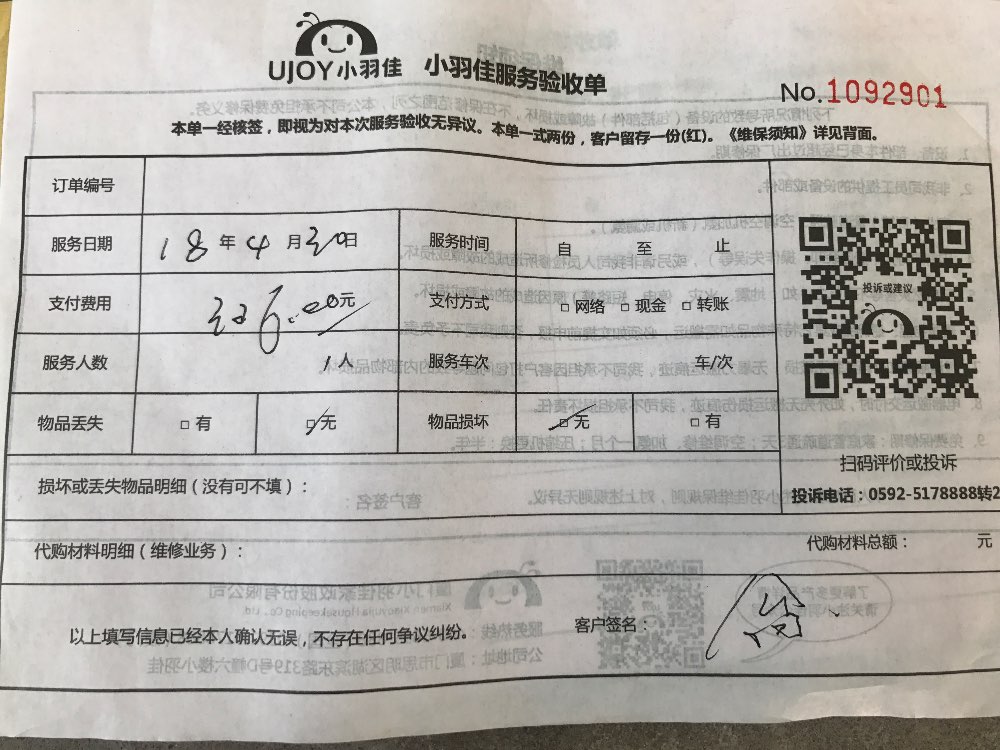 UJOY小羽佳 小羽佳服务验收单
No.1092901
本单一经核签，即视为对本次服务验收无异议。本单一式两份，客户留存一份(红)。《维保须知》详见背面。
订单编号
服务日期 18年4月30日 服务时间 自 至 止
支付费用 326.00元 支付方式 □网络 □现金 □转账
投诉或建议
服务人数 1人 服务车次 车/次
物品丢失 □有 □无 物品损坏 □无 □有
扫码评价或投诉
损坏或丢失物品明细（没有可不填）：
投诉电话：0592-5178888转2
代购材料明细（维修业务）： 代购材料总额： 元
以上填写信息已经本人确认无误，不存在任何争议纠纷。 客户签名：